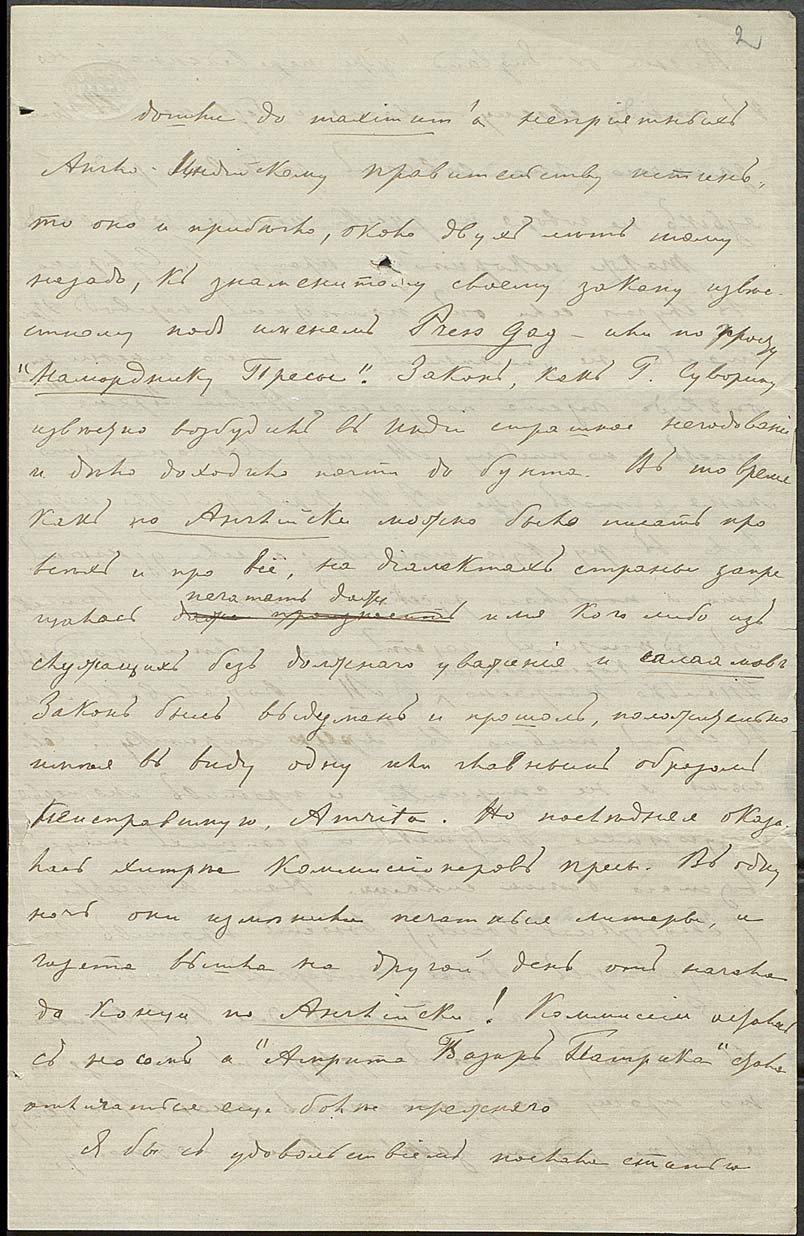 2
дошли до maximum'а непріятныхъ
Англо-Индійскому правительству истинъ,
то оно и прибѣгло, около двухъ лѣтъ тому
назадъ, къ знаменитому своему закону извѣ-
стному подъ именемъ Press Gag – или по просту
"Наморднику Пресы". Законъ, какъ Г. Суворину
извѣстно возбудилъ въ Индіи страшное негодованіе
и дѣло доходило почти до бунта. Въ то время
какъ по Англійски можно было писать про
всѣхъ и про всё, на діалектахъ страны запре
печатать даже
щалась даже произносить имя кого либо изъ
служащихъ безъ должнаго уваженія и салаамовъ
Законъ былъ выдуманъ и прошолъ, положительно
имѣя въ виду одну или главнымъ образомъ
неисправимую, Amrita. Но послѣдняя оказа-
лась хитрѣе Коммисіонеровъ пресы. Въ одну
ночь они измѣнили печатныя литеры, и
газета вышла на другой день отъ начала
до конца по Англійски! Коммисія осталась
съ носомъ а "Амрита Базаръ Патрика" стала
отличаться еще болѣе прежняго
Я бы съ удовольствіемъ послала статью